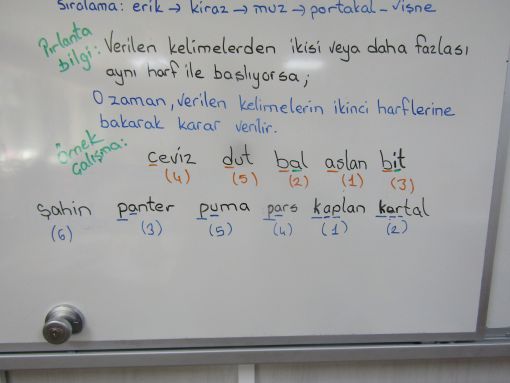 Sıralama: erik → kiraz → muz → portakal - vişne
Pırlanta bilgi: Verilen kelimelerden ikisi veya daha fazlası
aynı harf ile başlıyorsa;
O zaman, verilen kelimelerin ikinci harflerine
bakarak karar verilir.
Örnek Çalışma:
ceviz dut bal aslan bit
(4) (5) (2) (1) (3)
şahin panter puma pars kaplan kartal
(6) (3) (5) (4) (1) (2)